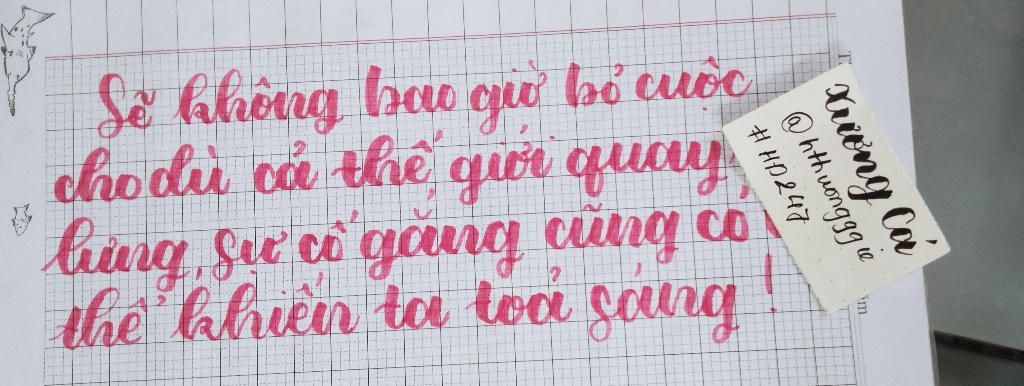 Sẽ không bao giờ bỏ cuộc
cho dù cả thế giới quay
lưng, sự cố gắng cũng có
thể khiến ta toả sáng !
xương Cá
@hthuongggie
#HD247